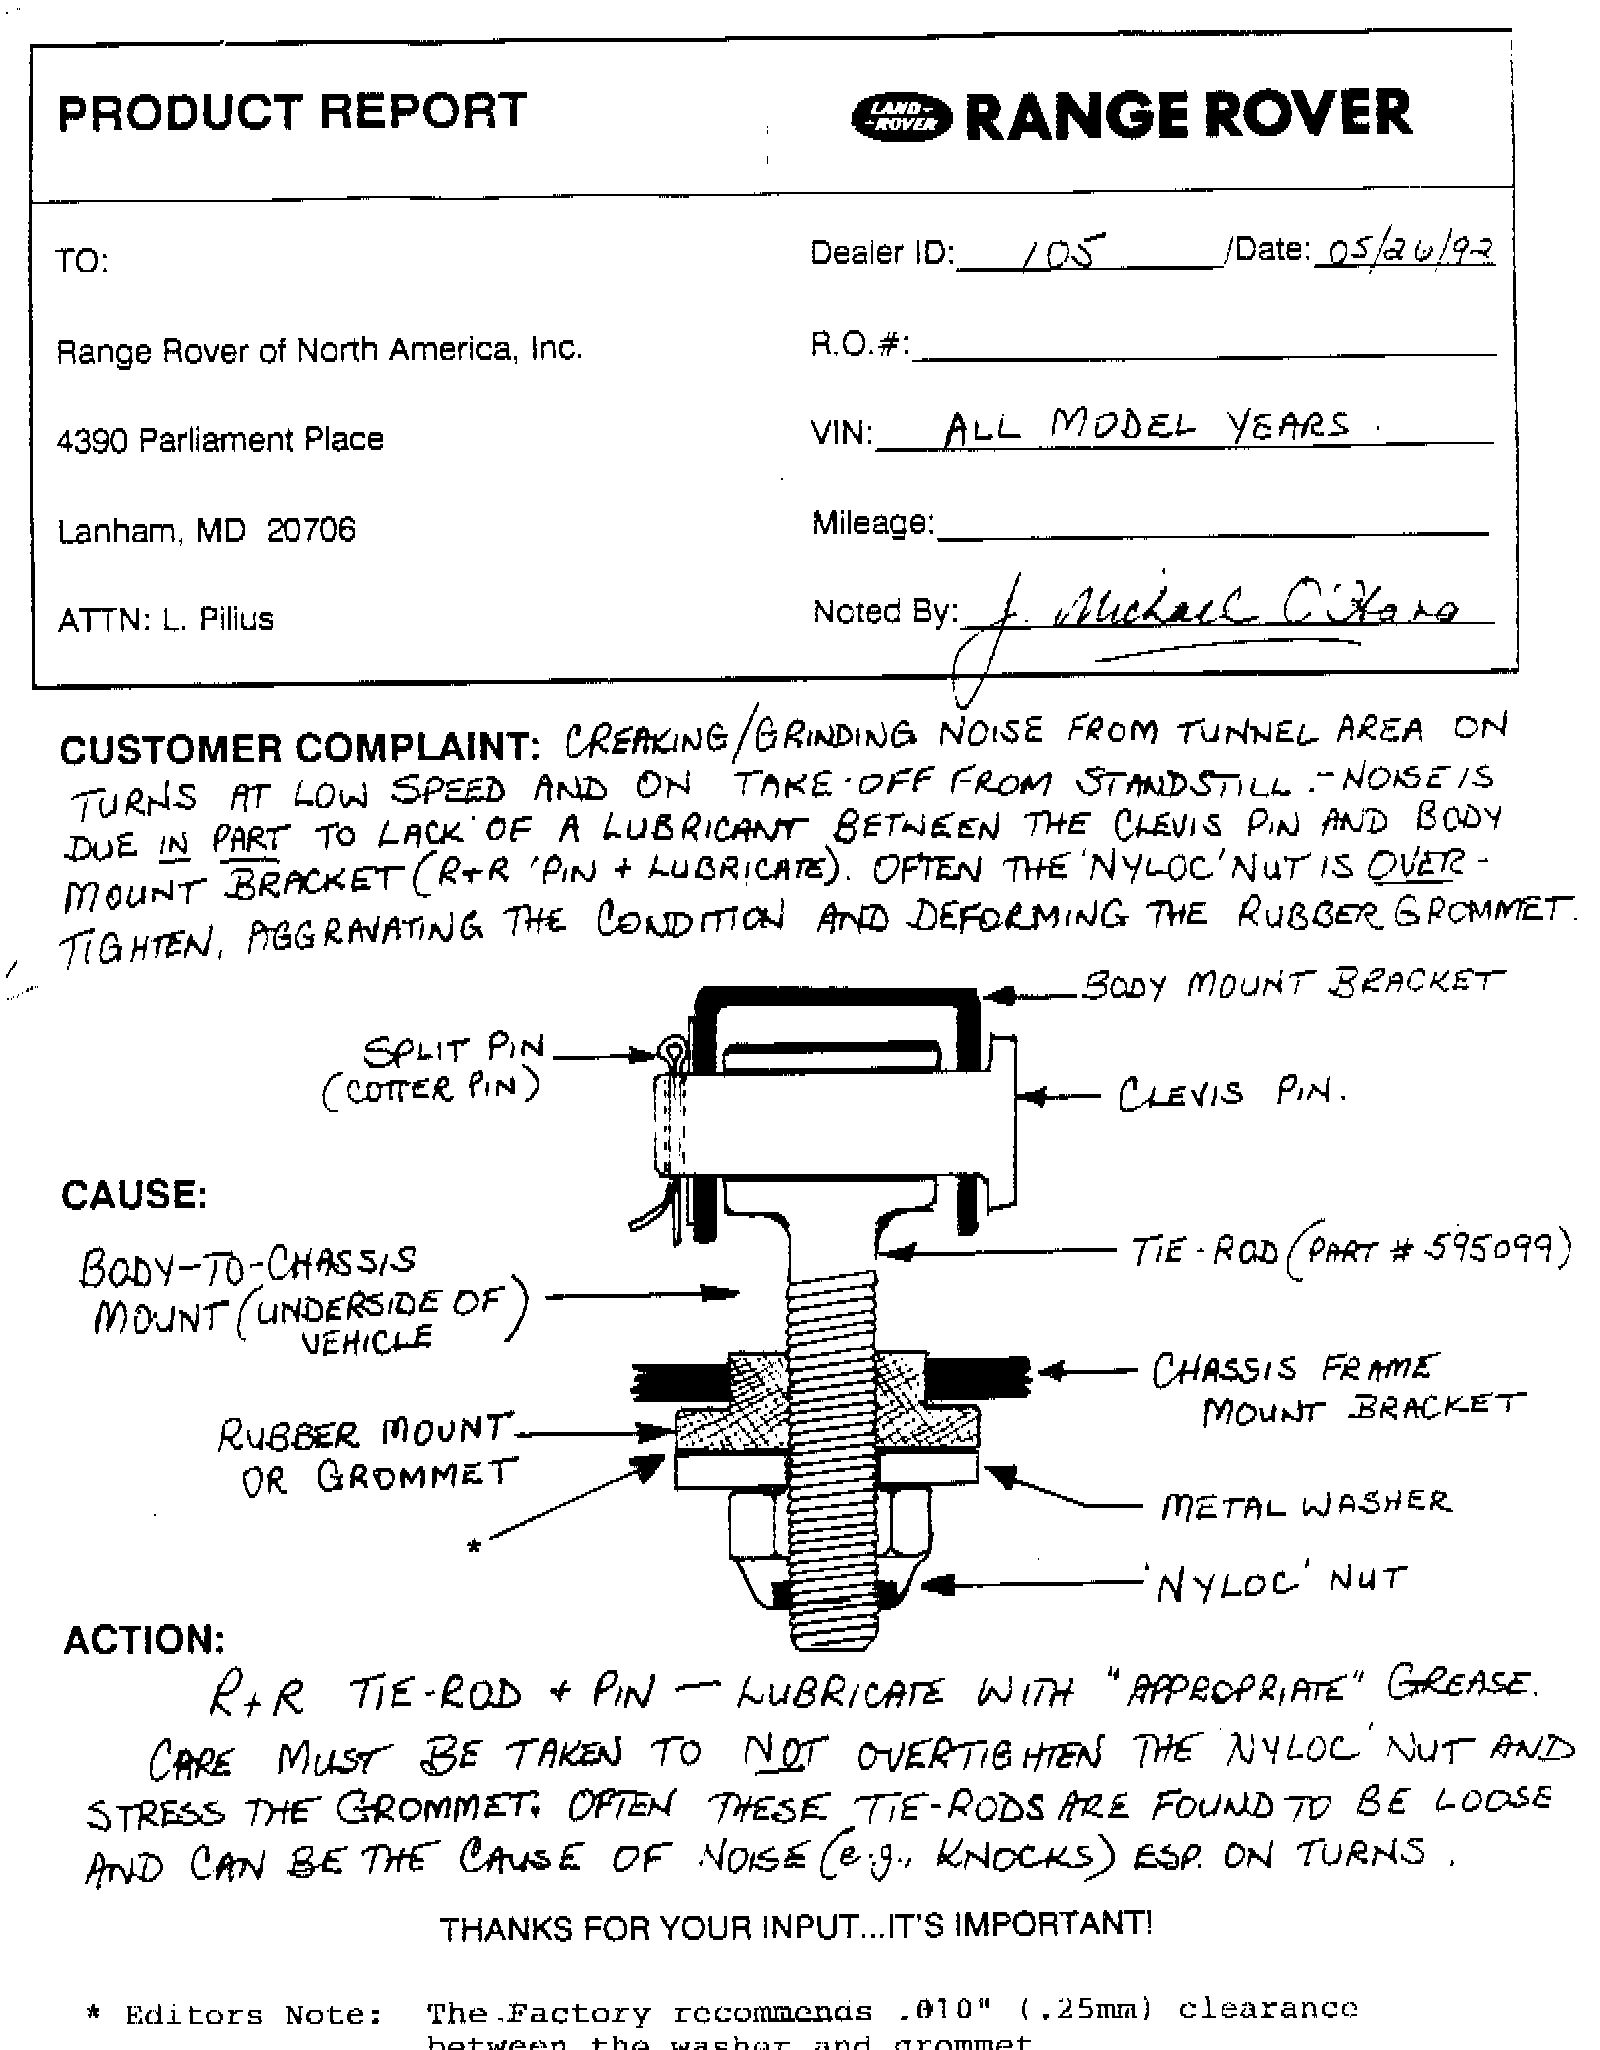 PRODUCT REPORT
LAND-
-ROVER
RANGE ROVER
TO:
Dealer ID: 105 /Date: 05/26/92
Range Rover of North America, Inc.
R.O.#:
4390 Parliament Place
VIN: ALL MODEL YEARS.
Lanham, MD 20706
Mileage:
ATTN: L. Pilius
Noted By: J. Michael O'Hara
CUSTOMER COMPLAINT: CREAKING/GRINDING NOISE FROM TUNNEL AREA ON
TURNS AT LOW SPEED AND ON TAKE-OFF FROM STANDSTILL.-NOISE IS
DUE IN PART TO LACK OF A LUBRICANT BETWEEN THE CLEVIS PIN AND BODY
MOUNT BRACKET (R+R 'PIN + LUBRICATE). OFTEN THE 'NYLOC' NUT IS OVER-
TIGHTEN, AGGRAVATING THE CONDITION AND DEFORMING THE RUBBER GROMMET.
BODY MOUNT BRACKET
SPLIT PIN
(COTTER PIN)
CLEVIS PIN.
CAUSE:
TIE-ROD (PART # 595099)
BODY-TO-CHASSIS
MOUNT (UNDERSIDE OF
VEHICLE)
CHASSIS FRAME
MOUNT BRACKET
RUBBER MOUNT
OR GROMMET
METAL WASHER
*
'NYLOC' NUT
ACTION:
R+R TIE-ROD + PIN — LUBRICATE WITH "APPROPRIATE" GREASE.
CARE MUST BE TAKEN TO NOT OVERTIGHTEN THE 'NYLOC' NUT AND
STRESS THE GROMMET. OFTEN THESE TIE-RODS ARE FOUND TO BE LOOSE
AND CAN BE THE CAUSE OF NOISE (e.g., KNOCKS) ESP. ON TURNS.
THANKS FOR YOUR INPUT...IT'S IMPORTANT!
* Editors Note: The Factory recommends .010" (.25mm) clearance
between the washer and grommet